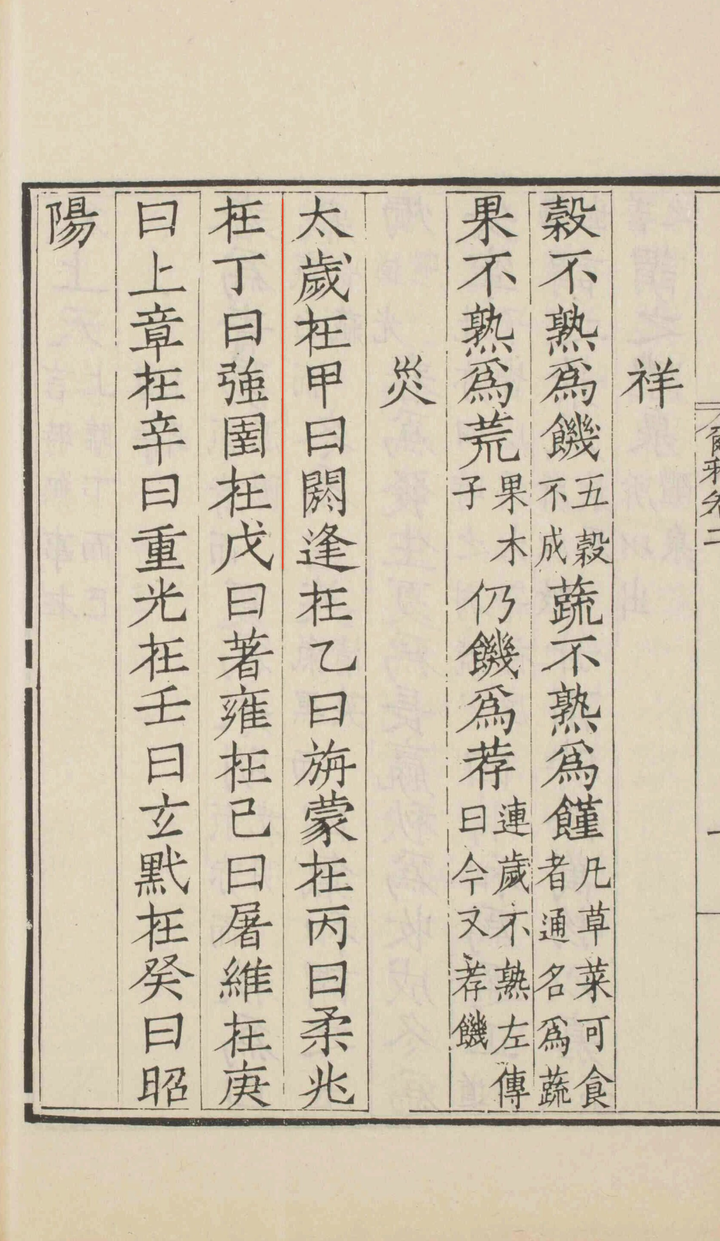 祥
穀不熟爲饑五穀不成蔬不熟爲饉凡草菜可食者通名爲蔬
果不熟爲荒果木子仍饑爲荐連歲不熟左傳曰今又荐饑
災
太歲在甲曰閼逢在乙曰旃蒙在丙曰柔兆
在丁曰強圉在戊曰著雍在己曰屠維在庚
曰上章在辛曰重光在壬曰玄黓在癸曰昭
陽